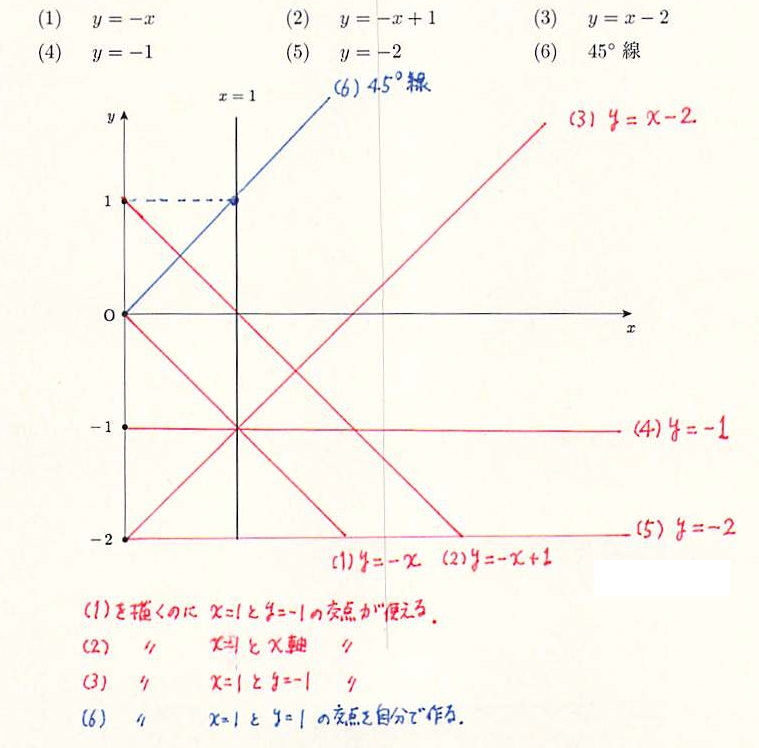 (1) y = −x (2) y = −x + 1 (3) y = x − 2
(4) y = −1 (5) y = −2 (6) 45° 線
(6) 45° 線
x = 1
(3) y = x−2
y
1
O
x
−1
(4) y = −1
−2
(5) y = −2
(1) y = −x (2) y = −x+1
(1)を描くのに x=1 と y=−1 の交点が使える.
(2) 〃 x=1 と x軸 〃
(3) 〃 x=1 と y=−1 〃
(6) 〃 x=1 と y=1 の交点を自分で作る.